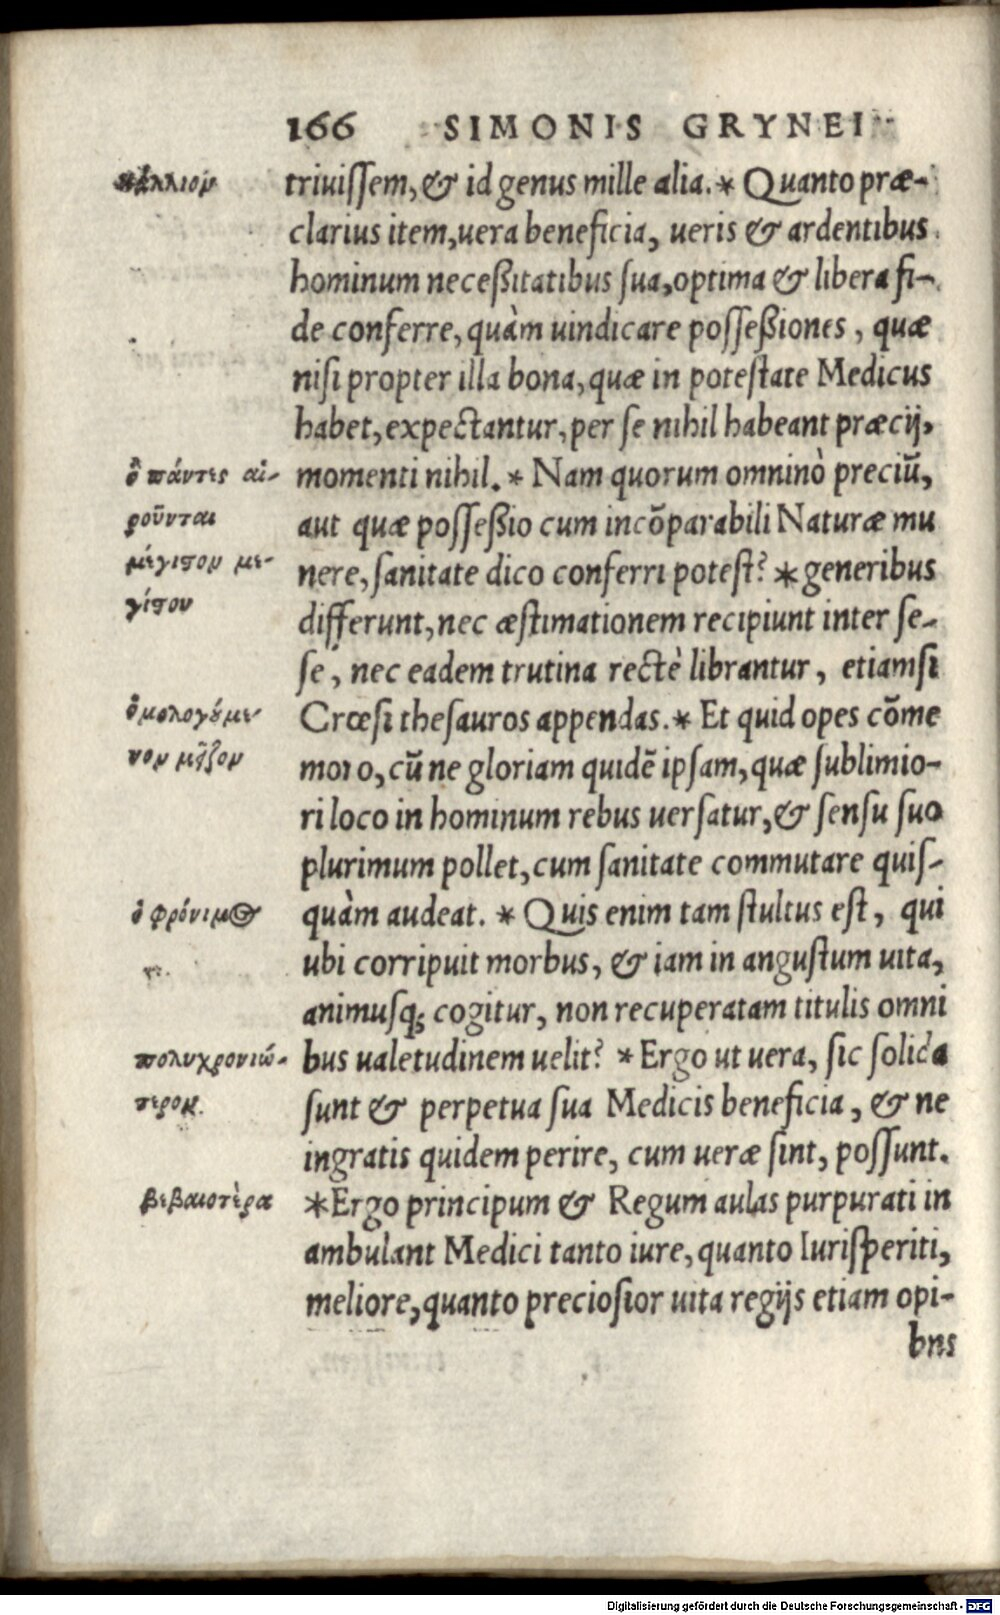 166 SIMONIS GRYNEI
κάλλιον
triuissem, & id genus mille alia. * Quanto præ-
clarius item, uera beneficia, ueris & ardentibus
hominum neceßitatibus sua, optima & libera fi-
de conferre, quàm uindicare posseßiones, quæ
nisi propter illa bona, quæ in potestate Medicus
habet, expectantur, per se nihil habeant præcij,
ὃ πάντες αἱ-
ροῦνται
μέγιστον με-
γίστου
momenti nihil. * Nam quorum omninò preciū,
aut quæ posseßio cum incōparabili Naturæ mu
nere, sanitate dico conferri potest? * generibus
differunt, nec æstimationem recipiunt inter se-
se, nec eadem trutina rectè librantur, etiamsi
ὁμολογούμε-
νον μεῖζον
Crœsi thesauros appendas. * Et quid opes cōme
moro, cū ne gloriam quidē ipsam, quæ sublimio-
ri loco in hominum rebus uersatur, & sensu suo
plurimum pollet, cum sanitate commutare quis-
ὁ φρόνιμος
quàm audeat. * Quis enim tam stultus est, qui
ubi corripuit morbus, & iam in angustum uita,
animusq; cogitur, non recuperatam titulis omni
πολυχρονιώ-
τερον.
bus ualetudinem uelit? * Ergo ut uera, sic solida
sunt & perpetua sua Medicis beneficia, & ne
ingratis quidem perire, cum ueræ sint, possunt.
βεβαιοτέρα
* Ergo principum & Regum aulas purpurati in
ambulant Medici tanto iure, quanto Iurisperiti,
meliore, quanto preciosior uita regijs etiam opi-
bus
Digitalisierung gefördert durch die Deutsche Forschungsgemeinschaft - DFG